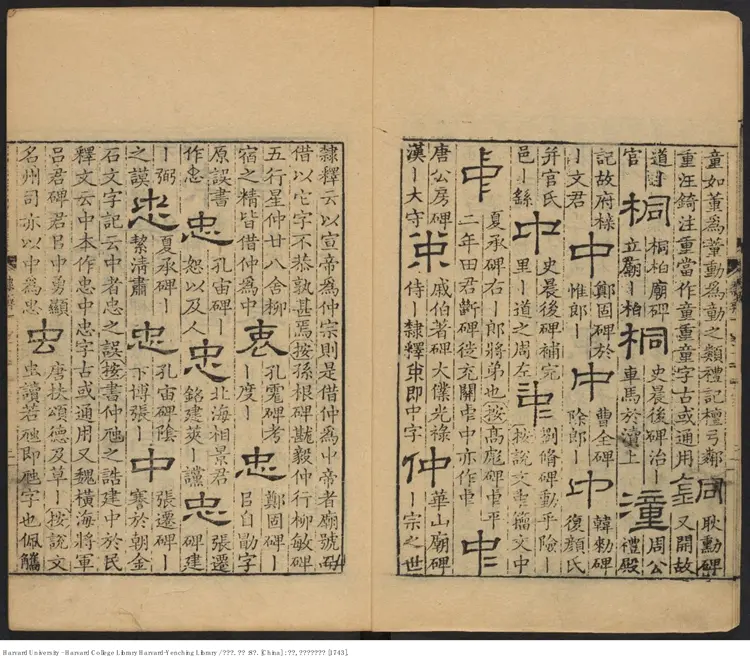 童如董為蕫動為動之類禮記檀弓鄰
重汪錡注重當作童重童字古或通用
同 耿勳碑
又開故
道 桐 桐柏廟碑 桐 史晨後碑治 潼 周公
官 立廟 柏 車馬於瀆上 禮殿
記故府椽 中 鄭固碑於 中 曹全碑 中 韓勅碑
文君 惟郎 除郎 復顏氏
并官氏 中 史晨後碑補完 中 劉脩碑動乎險
邑 繇 里 道之周左 按說文 籒文中
中 夏承碑右 郎將弟也按高彪碑 平 中
二年田君斷碑 充關 中亦作
唐公房碑 戚伯著碑大僕光祿 仲 華山廟碑
漢 大守 侍 隸釋 即中字 宗之世
隸釋云以宣帝為仲宗則是借仲為中帝者廟號
借以它字不恭孰甚焉按孫根碑 毅仲行柳敏碑
五行星仲廿八舍柳 衷 孔宙碑考 忠 鄭固碑
宿之精皆借仲為中 度 吕白勛字
原誤書 忠 孔宙碑 忠 北海相景君 忠 張遷
作忠 恕以及人 銘建 讜 碑建
弼 忠 夏承碑 忠 孔宙碑陰 中 張遷碑
之謨 絜清肅 下博張 謇於朝金
石文字記云中者忠之誤按書仲虺之誥建中於民
釋文云中本作忠中忠字古或通用又魏橫海將軍
吕君碑君吕中勇顯 唐扶頌德及草 按說文
名州司亦以中為忠 虫 虫讀若虺即虺字也佩觿
Harvard University - Harvard College Library Harvard-Yenching Library / ???. ?? :8?. [China] : ??, ??????? [1743].